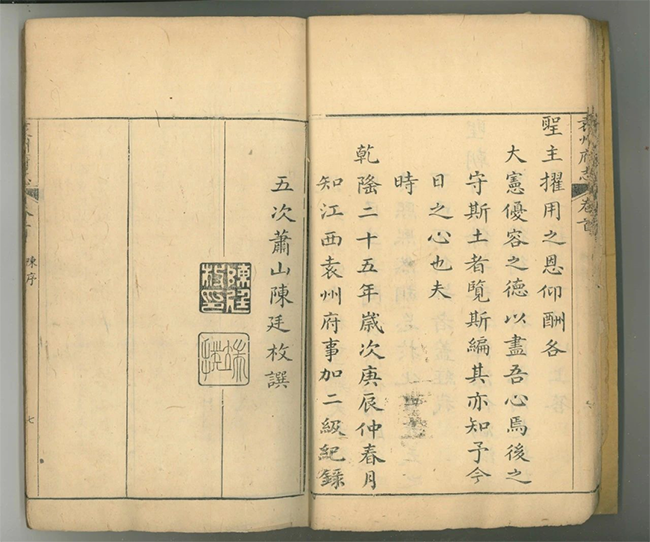 袁州府志 卷首
聖主擢用之恩仰酬各
大憲優容之德以盡吾心焉後之
守斯土者覽斯編其亦知予今
日之心也夫
時
乾隆二十五年歲次庚辰仲春月
知江西袁州府事加二級紀錄
五次蕭山陳廷枚譔
陳廷枚印
陳序
七